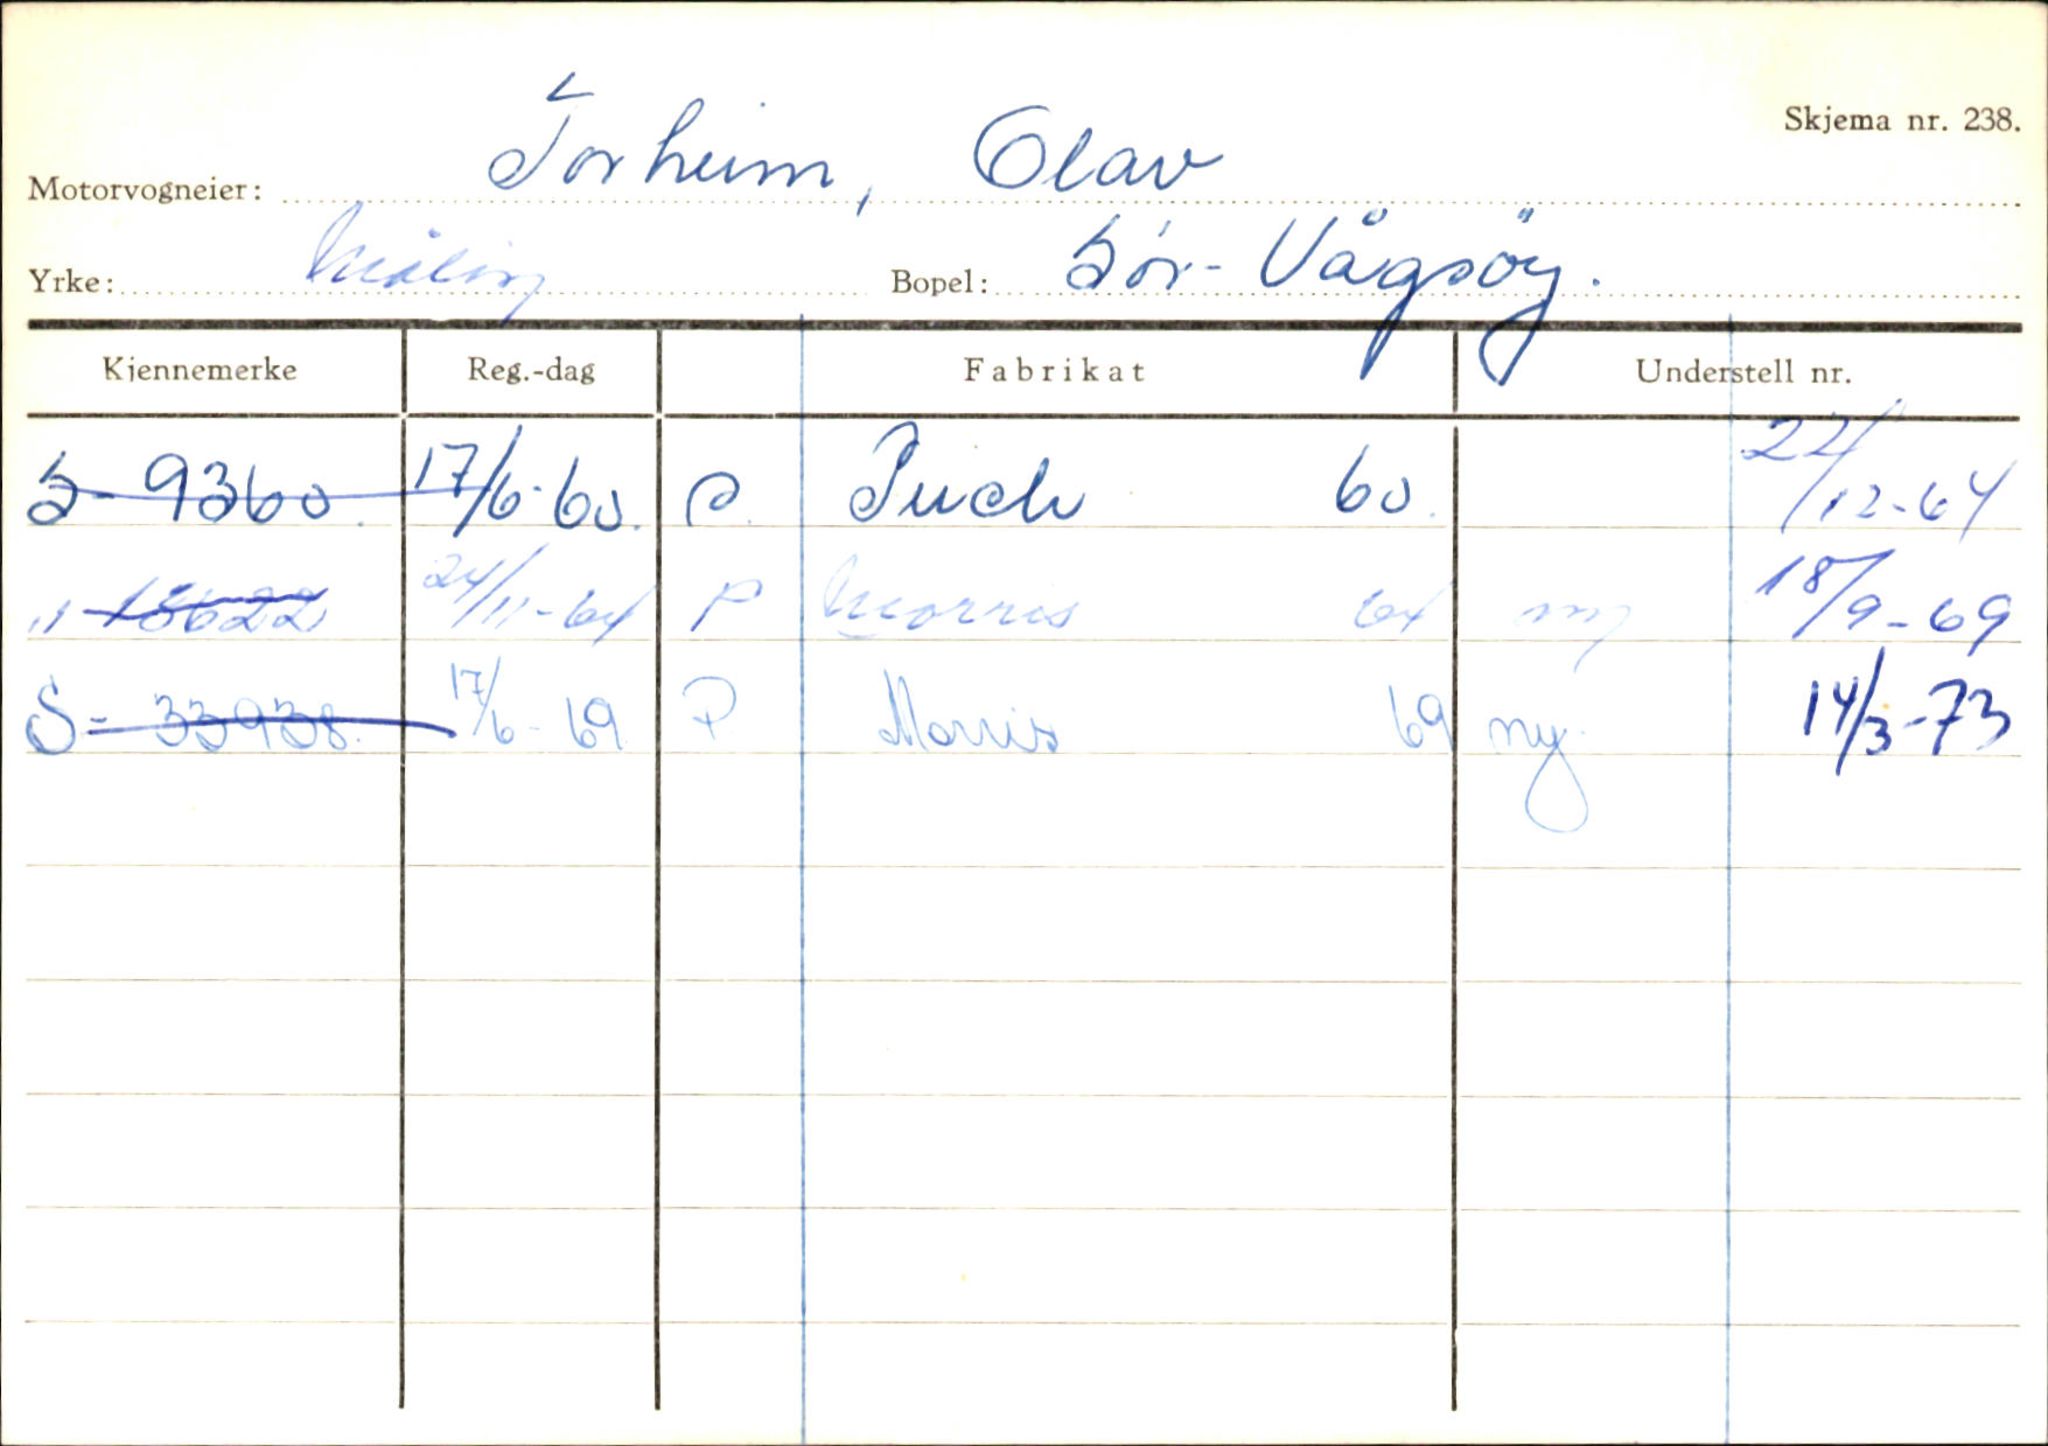 Skjema nr. 238.
Motorvogneier: Torheim, Olav
Yrke: Måløy Bopel: Sör-Vågsöy.
Kjennemerke Reg.-dag Fabrikat Understell nr.
S-9360. 17/6-60. P. Puch 60. 22/12-64
" 18622 24/11-64 P Morris 64 ny 18/9-69
S-33938. 17/6-69 P Morris 69 ny. 14/3-73